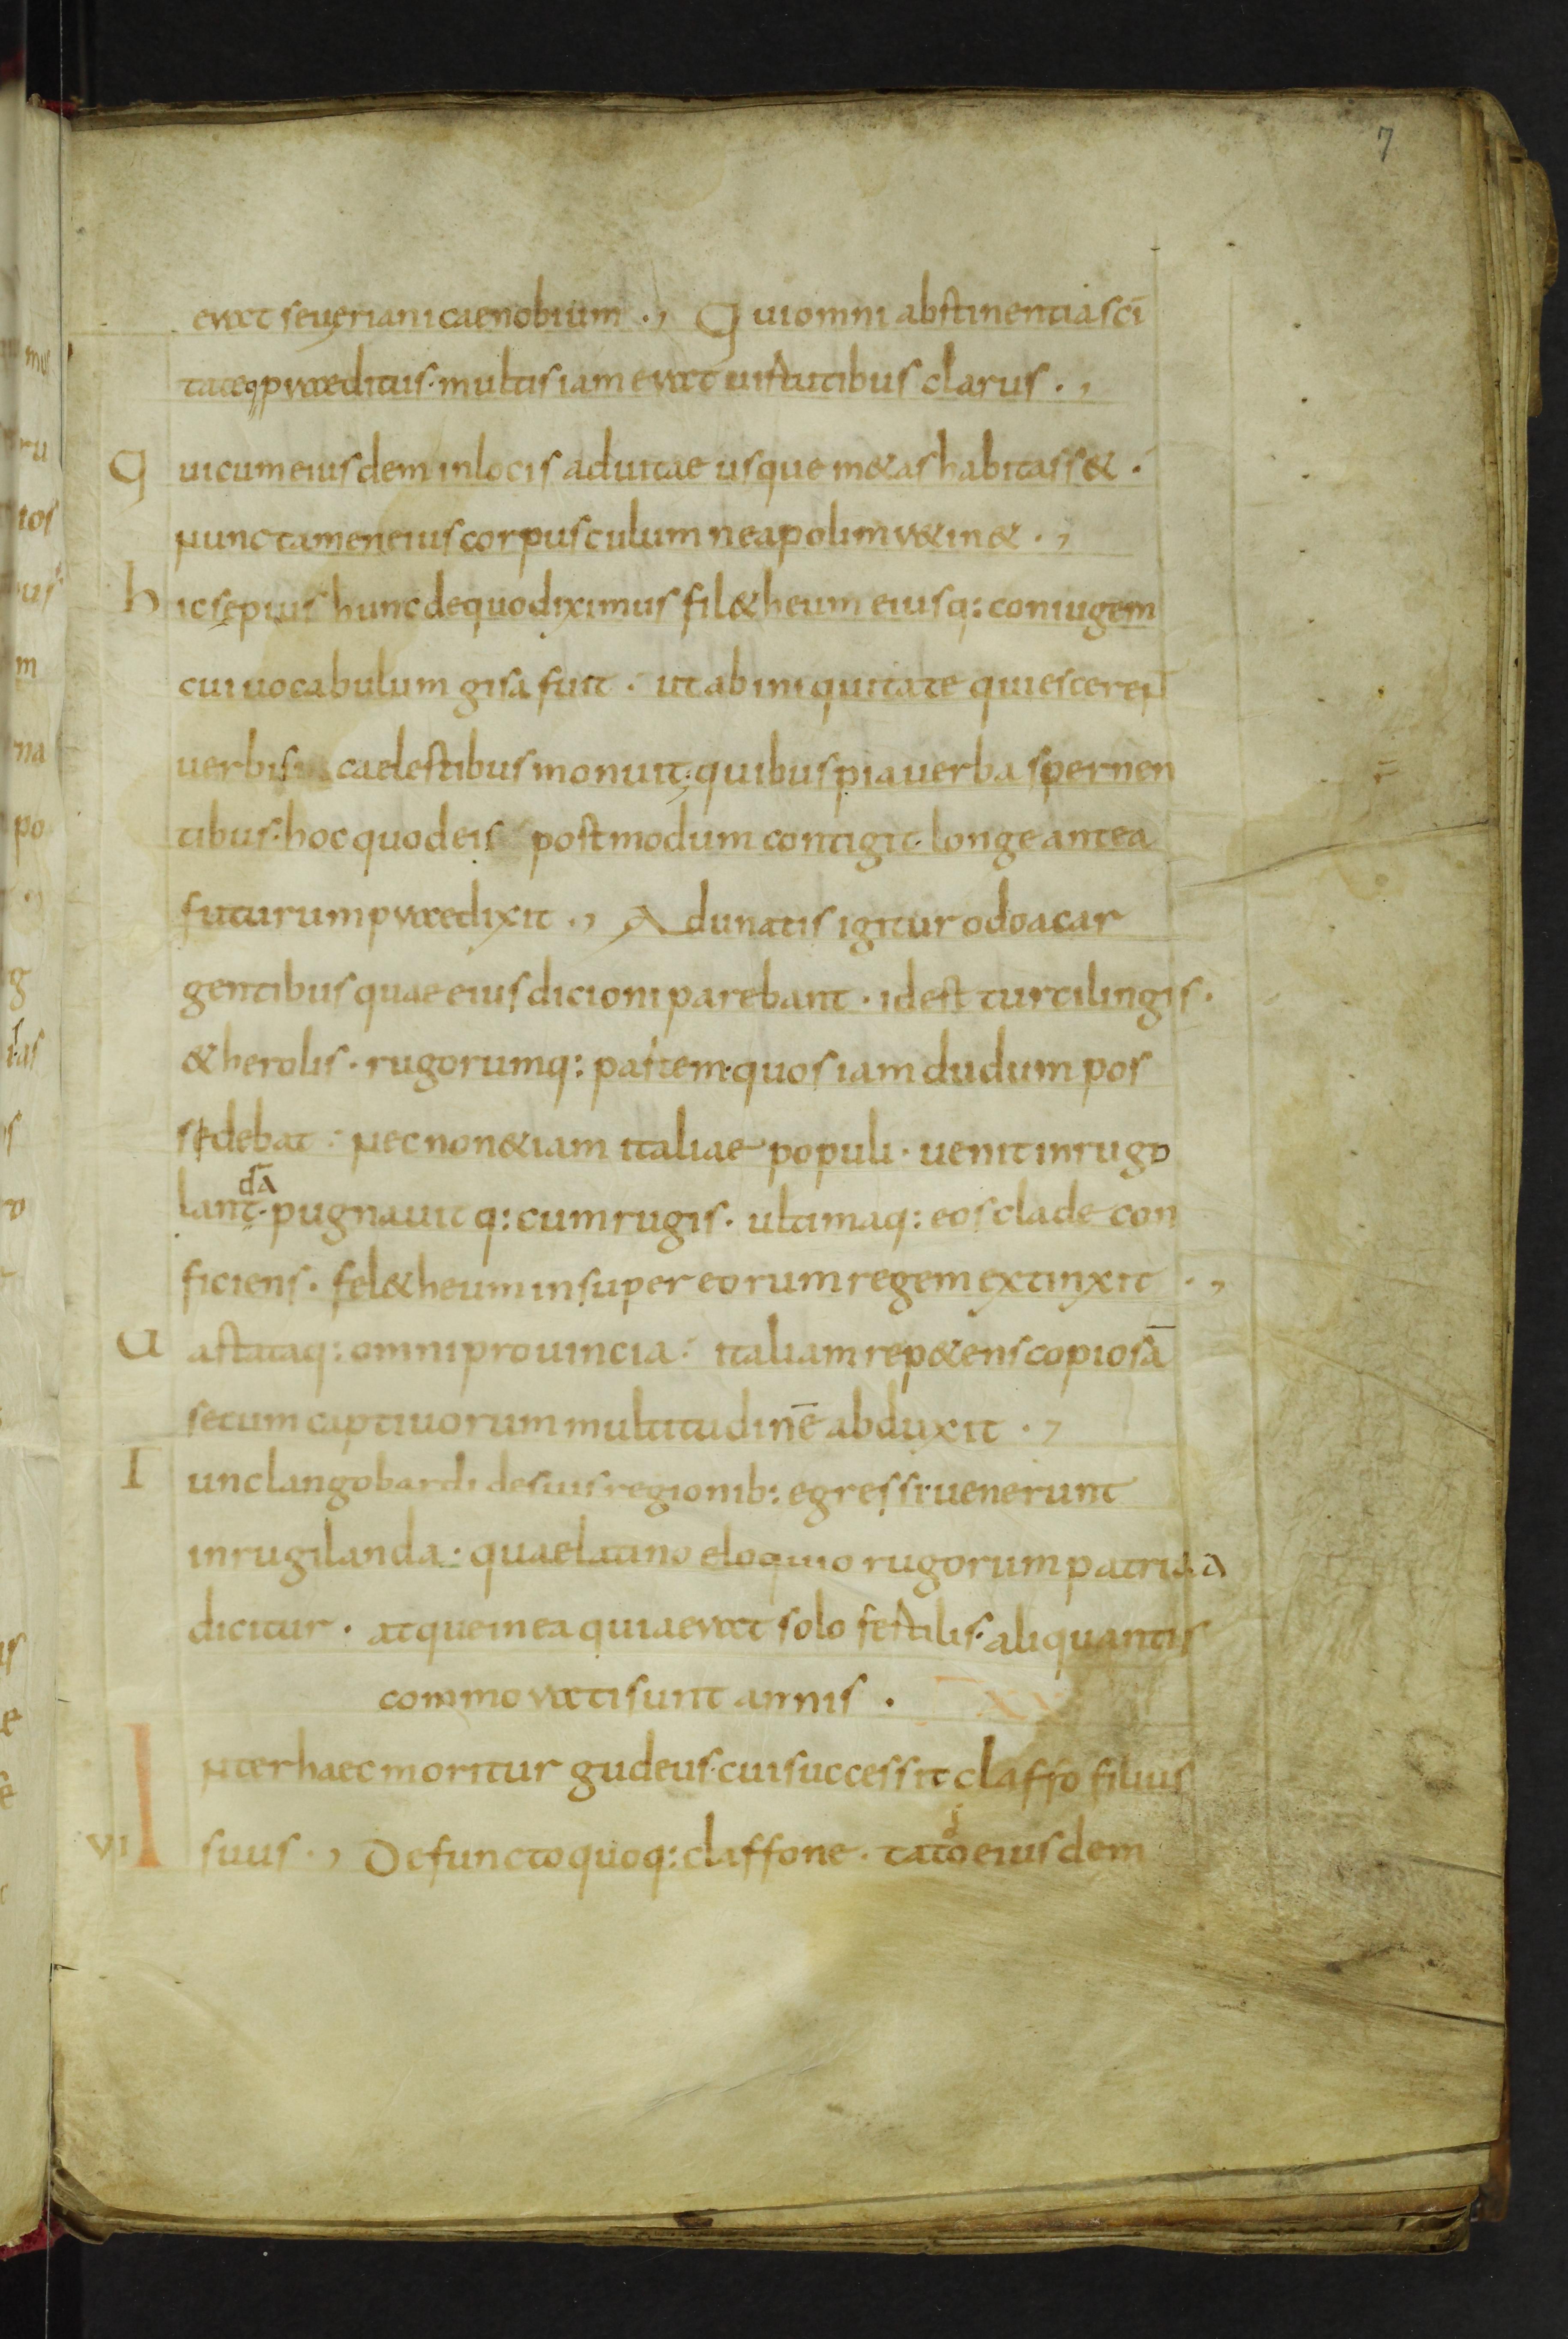 7
erat seueriani caenobium ., Qui omni abstinentia sci̅
tateq; praeditus · multis iam erat uirtutibus clarus .,
Qui cum eiusdem in locis ad uitae usque m&as habitass& ·
nunc tamen eius corpusculum neapolim r&in& .,
hic sępius hunc de quo diximus fil&heum eiusq: coniugem
cui uocabulum gisa fuit · ut ab iniquitate quiescerent
uerbis caelestibus monuit; quibus pia uerba spernen
tibus · hoc quod eis postmodum contigit · longe antea
futurum praedixit ., Adunatis igitur odoacar
gentibus quae eius dicioni parebant · id est turcilingis ·
& herolis · rugorumq: partem · quos iam dudum pos
sidebat · nec non &iam italiae populi · uenit in rugo
lant da̅ · pugnauitq: cum rugis · ultimaq: eos clade con
ficiens · fel&heum insuper eorum regem extinxit .,
Uastataq: omni prouincia · italiam rep&ens copiosa̅
secum captiuorum multitudine̅ abduxit .,
Tunc langobardi de suis regionib: egressi uenerunt
in rugilanda · quae latino eloquio rugorum patria a
dicitur · atque in ea quia erat solo fertilis · aliquantis
commorati sunt annis · XV
Inter haec moritur gudeus · cui successit claffo filius
VI suus ., Defuncto quoq: claffone · tato eiusdem